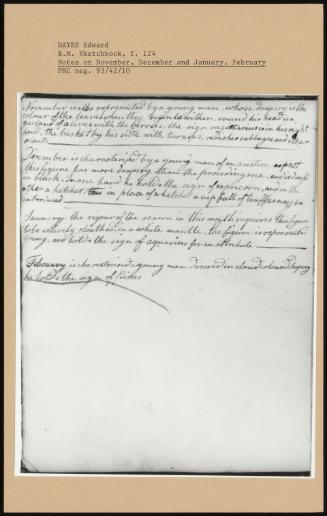 DAYES Edward
B.M. Sketchbook, f. 124
Notes on November, December and January, February
PMC neg. 93/42/10
November is also represented by a young man, whose drapery is the
colour of the leaves when they begin to wither, round his head is a
garland of olives with the berries, the sign sagittarius is in his right
hand, the basket by his side with turneps, radishes cabbages and other
plants
December is characterised by a young man of an austere aspect
this figure has more drapery than the preceding one, and is drest
in black. In one hand he holds the sign of capricorn, and in the
other a hatchet, in place of a hatchet a cup full of truffles may be
introduced
January the rigour of the season in this month requires the figure
to be entirely cloathed, in a white mantle. the figure is represented
young, and holds the sign of aquarius for an attribute
February is characterised a young man dressed in cloud coloured drapery
he holds the sign of Pisces